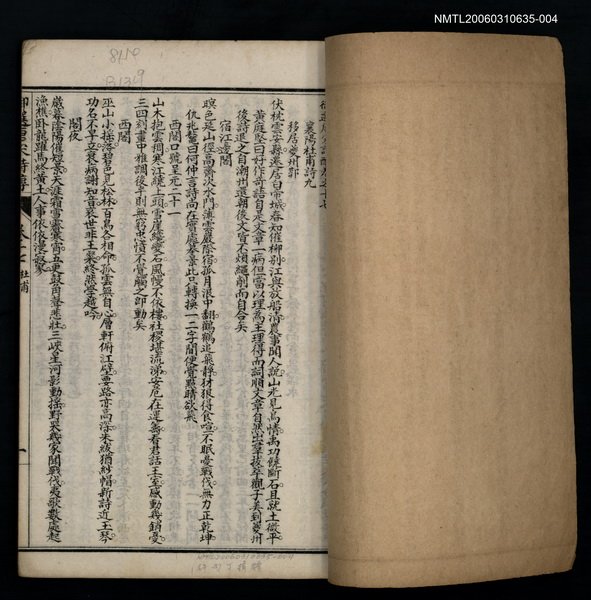 NMTL20060310635-004
襄陽杜甫詩九
移居夔州郭
伏枕雲安縣遷居白帝城春知催柳別江與放船清農事聞人說山光見鳥情禹功饒斷石且就土微平
黃庭堅曰好作奇語自是文章一病但當以理為主理得而詞順文章自然出羣拔萃觀子美到夔州
後詩退之自潮州還朝後文皆不煩繩削而自合矣
宿江邊閣
暝色延山徑高齋次水門薄雲巖際宿孤月浪中翻鸛鶴追飛靜豺狼得食喧不眠憂戰伐無力正乾坤
仇兆鰲曰何仲言詩尚在實處摹景此只轉換一二字間便覺點睛欲飛
西閣口號呈元二十一
山木抱雲稠寒江繞上頭雪崖纔變石風幔不依樓社稷堪流涕安危在運籌看君話王室感動幾銷憂
三四到畫中雅調後半無窮忠憤不覺觸之即動矣
西閣
巫山小搖落碧色見松林百鳥各相命孤雲無自心層軒俯江壁要路亦高深朱紱猶紗帽新詩近玉琴
功名不早立衰病謝知音哀世非王粲終然學越吟
閣夜
歲暮陰陽催短景天涯霜雪霽寒宵五更鼓角聲悲壯三峽星河影動搖野哭幾家聞戰伐夷歌數處起
漁樵臥龍躍馬終黃土人事依依漫寂寥
杜甫